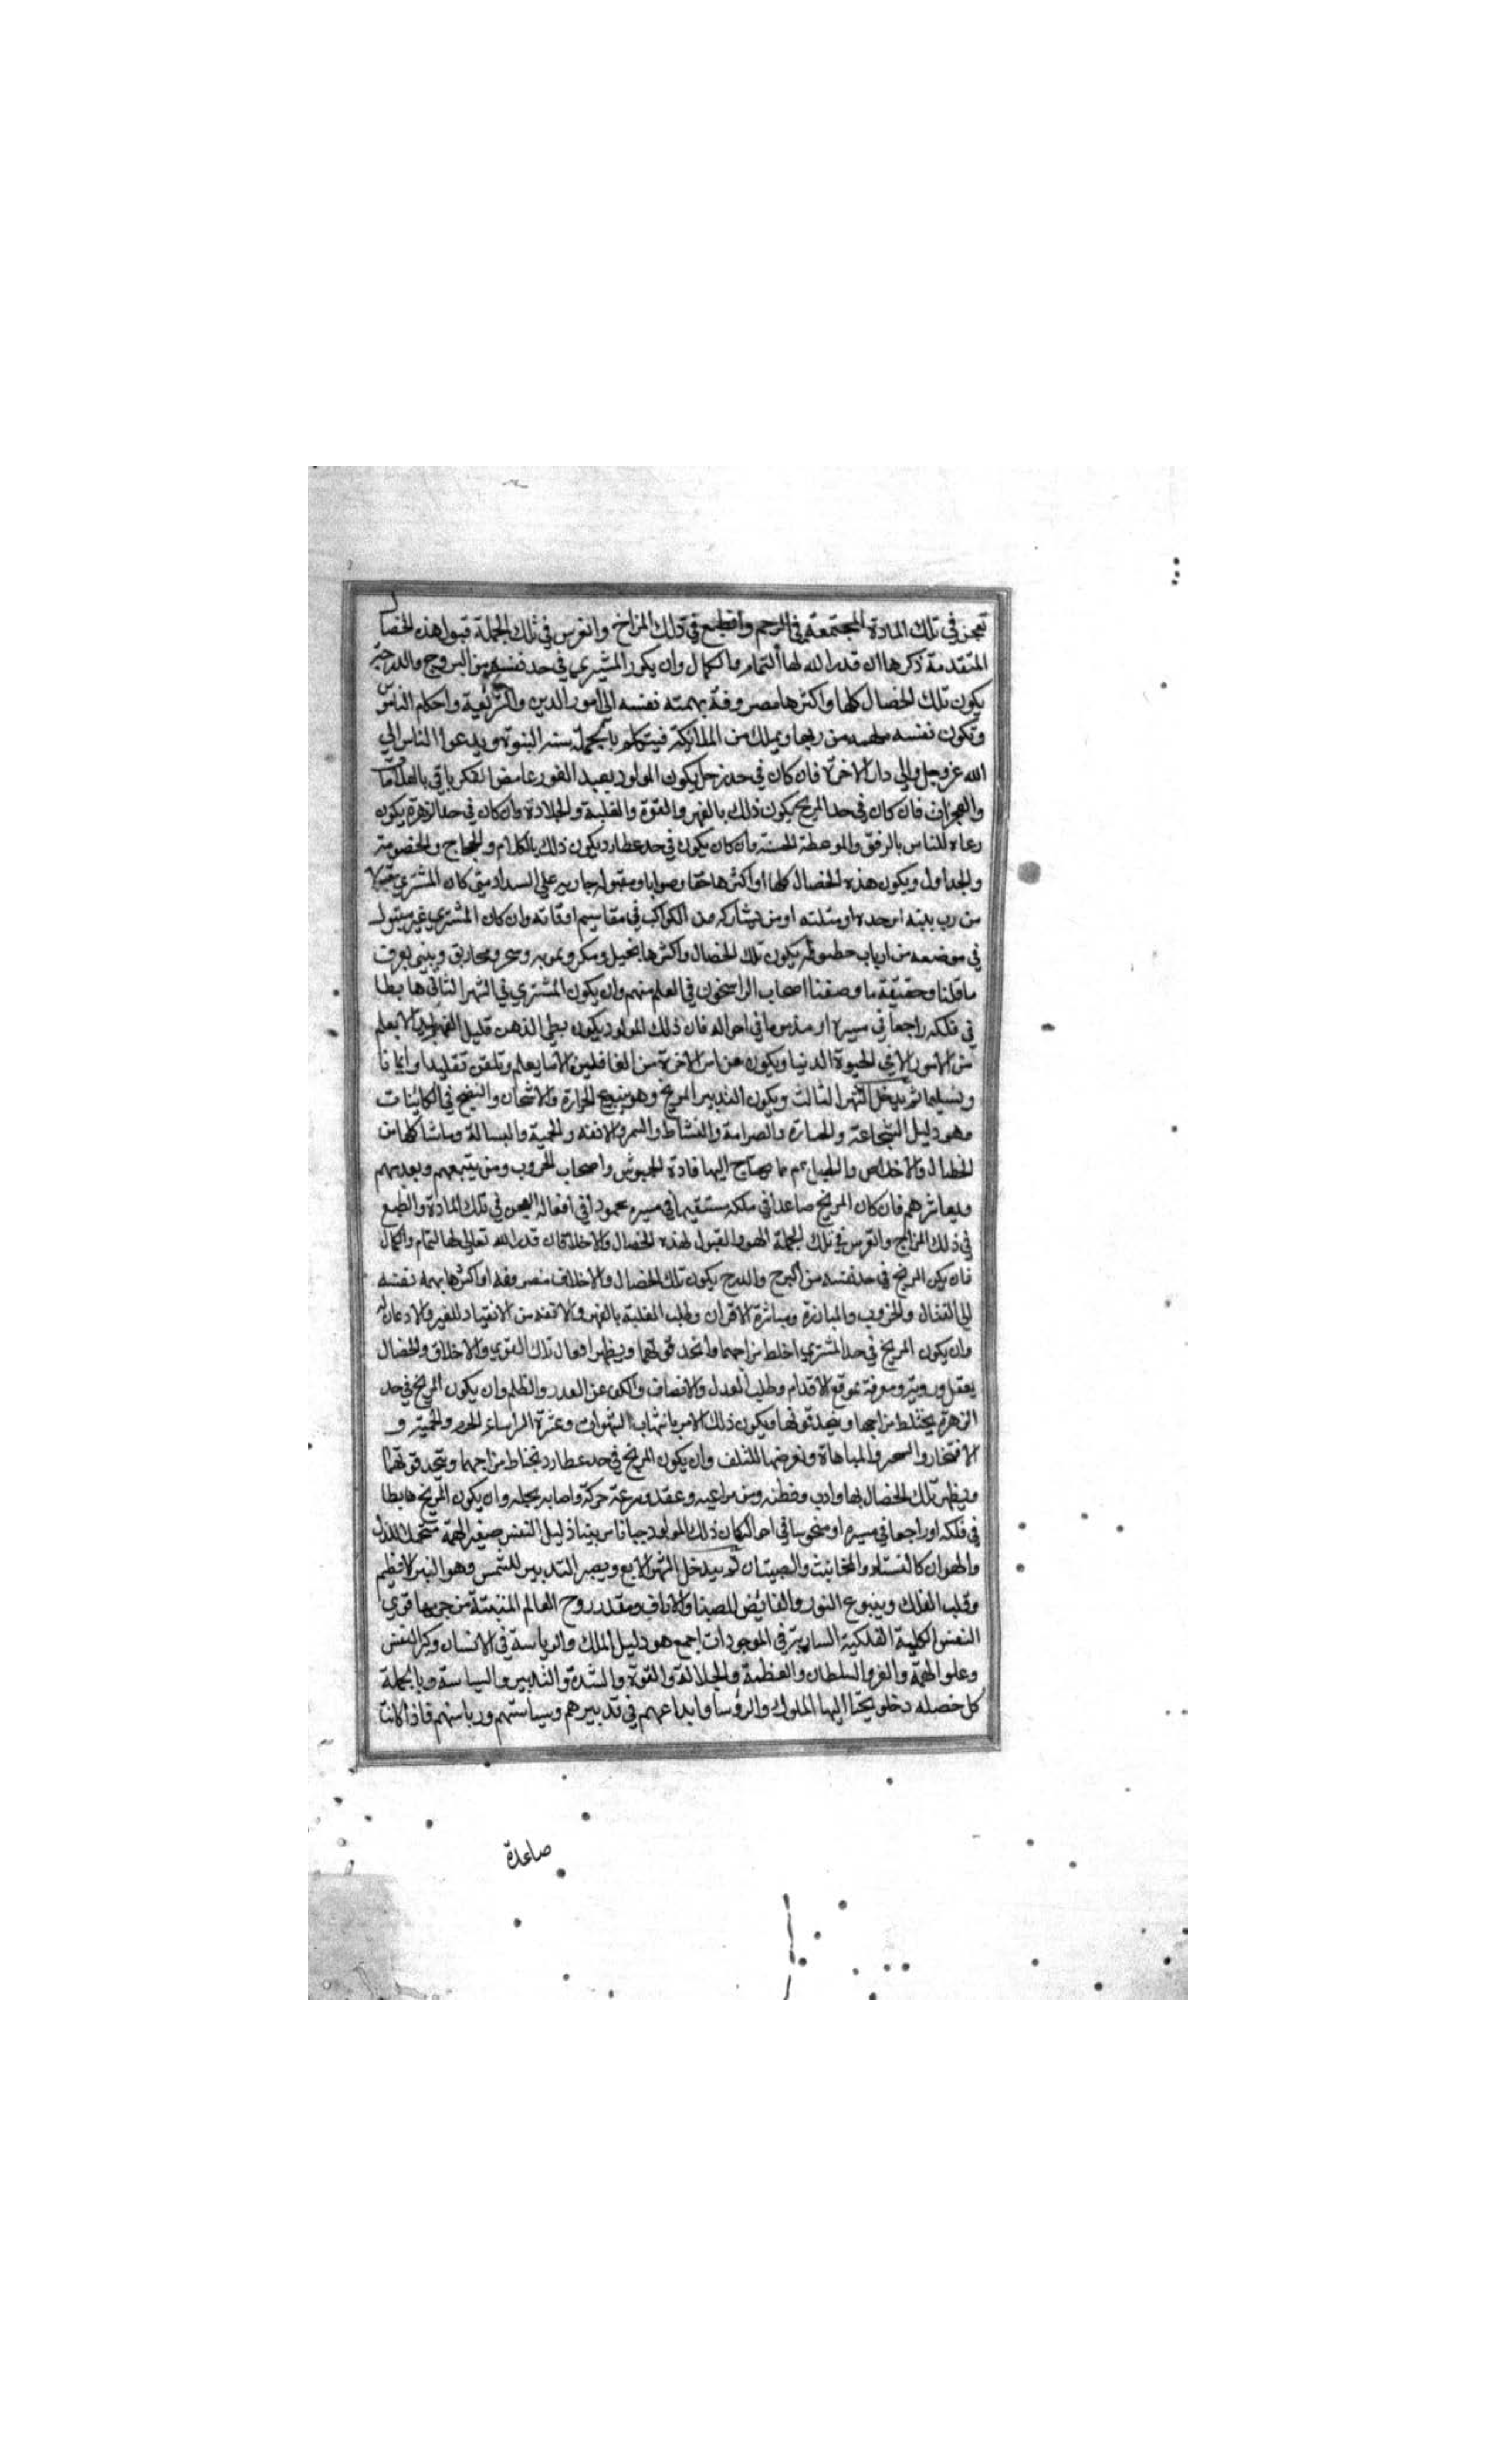 تعجن في تلك المادة المجتمعة في الرحم وانطبع في ذلك المزاج وانغرس في تلك الجملة قبول هذه الخصال
المتقدمة ذكرها ان قدر الله لها التمام والكمال وان يكون المشتري في حد نفسه من البروج والدرجة
يكون تلك الخصال كلها واكثرها مصروفة بهمته نفسه الى امور الدين والشريعة واحكام الناس
وتكون نفسه من ربها وبملك من الملايكة فيتكلم بالجملة بستر النبوة ويدعوا الناس الي
الله عز وجل والي دار الاخرة فان كان في حد زحل يكون المولود بعيد الغور غامض الفكر ياتي بالعلامات
والمعجزات فان كان في حد المريخ يكون ذلك بالقهر والقوة والغلبة والجلادة وان كان في حد الزهرة يكون
دعاه للناس بالرفق والموعظة الحسنة وان كان يكون في حد عطارد يكون ذلك بالكلام والحجاج والخصومة
والجداول ويكون هذه الخصال كلها او اكثرها حقا وصوابا ومقبوله جاريه على السداد متي كان المشتري مقبولا
من رب بيته او حده او مثلثه او من يشاركه من الكواكب في مقاسيم اوقاته وان كان المشتري غير مقبول
في موضعه من ارباب حظوظه يكون تلك الخصال واكثرها بتحيل ومكر وتمويه وسحر ومخاريق ويعرف
ما قلنا وحقيقة ما وصفنا اصحاب الراسخون في العلم منهم وان يكون المشتري في الشهر الثاني هابطا
في فلكه راجعا في مسيره او مذموما في احواله فان ذلك المولود يكون بطي الذهن قليل الفهم لا يعلم
من الامور الا في الحيوة الدنيا ويكون عن امر الاخرة من الغافلين الا ما يعلم وتلقن تقليدا وايمانا
وتسليما ثم يدخل الشهر الثالث ويكون التدبير للمريخ وهو ينبوع الحرارة والاسخان والنضج في الكائنات
وهو دليل الشجاعة والجسارة والصرامة والنشاط والسمر والانفه والحمية والبسالة وما شاكلها من
الخصال والاخلاص والطبايع مما يحتاج اليها قادة الجيوش واصحاب الحروب ومن يتبعهم ويعدهم
ويعاشرهم فان كان المريخ صاعدا في فلكه مستقيما في مسيره محمودا في افعاله العجن في تلك المادة والطبع
في ذلك المزاج والغرس في تلك الجملة القبول لهذه الخصال والاخلاق ان قدر الله تعالى لها التمام والكمال
فان يكن المريخ في حد نفسه من البرج والدرج يكون تلك الخصال والاخلاق منصرفه او اكثرها بهمه نفسه
الى القتال والحروب والمبارزة ومباشرة الاقران وطلب الغلبة بالقهر والانفه من الانقياد للغير والاذعان له
وان يكون المريخ في حد المشتري اختلط مزاجهما واتحد قوتهما ويظهر افعال تلك القوي والاخلاق والخصال
بعقل وروية ومعرفة بموقع الاقدام وطلب العدل والانصاف والكف عن الغدر والظلم وان يكون المريخ في حد
الزهرة يختلط مزاجهما ويتحد قوتها ويكون ذلك الامر بانتهاب الشهوات وعثرة والحمية و
الافتخار والمباهاة وتعرضها للتلف وان يكون المريخ في حد عطارد يختلط مزاجهما ويتحد قوتهما
ويظهر تلك الخصال بها وادب وفطنه وسرعة حركة واصابه بعجله وان يكون المريخ هابطا
في فلكه او راجعا في مسيره او منحوسا في احواله كان ذلك المولود جبانا ذليل النفس صغير الهمة متحملا للذل
والهوان كالنساء والمخانيث والصبيان ثم يدخل الشهر الرابع ويصير التدبير للشمس وهو النير الاعظم
وقلب الفلك وينبوع النور والفائض للضياء روح العالم المنبعثة من جرمها قوي
النفس الكلية الفلكية السارية في الموجودات اجمع هو دليل الملك والرياسة في الانسان وكبر النفس
وعلو الهمة والعز والسلطان والعظمة والجلالة والقوة والشدة والتدبير والسياسة وبالجملة
كل خصله يحتاج اليها الملوك والرؤسا واتباعهم في تدبيرهم وسياستهم ورياستهم فاذا كانت
صاعدة